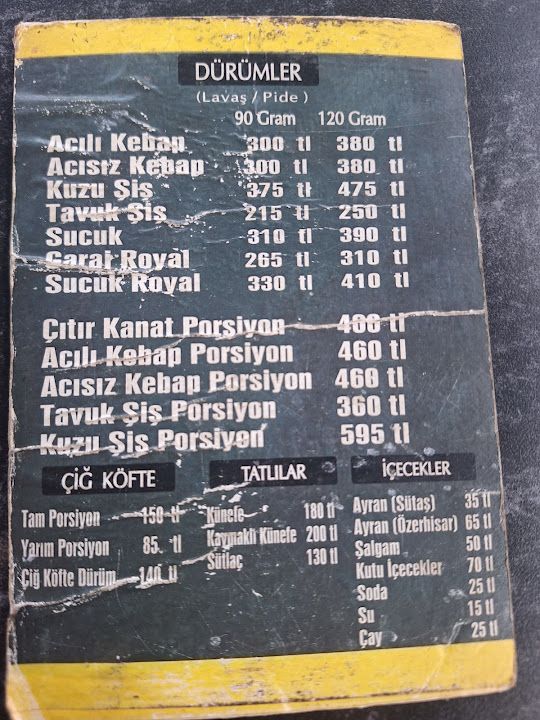 DÜRÜMLER
(Lavaş / Pide )
90 Gram 120 Gram
Acılı Kebap 300 tl 380 tl
Acısız Kebap 300 tl 380 tl
Kuzu Şiş 375 tl 475 tl
Tavuk Şis 215 tl 250 tl
Sucuk 310 tl 390 tl
Garal Royal 265 tl 310 tl
Sucuk Royal 330 tl 410 tl
Çıtır Kanat Porsiyon tl
Acılı Kebap Porsiyon 460 tl
Acısız Kebap Porsiyon 460 tl
Tavuk Şiş Porsiyon 360 tl
Kuzu Şiş Porsiyon 595 tl
ÇİĞ KÖFTE
Tam Porsiyon 150 tl
Yarım Porsiyon 85 tl
Çiğ Köfte Dürüm 140 tl
TATLILAR
Künefe 180 tl
Kaymaklı Künefe 200 tl
Sütlaç 130 tl
İÇECEKLER
Ayran (Sütaş) 35 tl
Ayran (Özerhisar) 65 tl
Şalgam 50 tl
Kutu İçecekler 70 tl
Soda 25 tl
Su 15 tl
Çay 25 tl